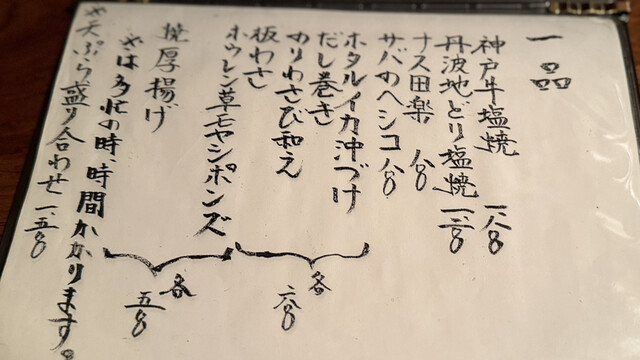 一品
神戸牛塩焼 一、八〇〇
丹波地どり塩焼 一、二〇〇
ナス田楽 八〇〇
サバのヘシコ 八〇〇
ホタルイカ沖づけ
だし巻き
のりわさび和え
各六〇〇
板わさ
ホウレン草モヤシポンズ
焼厚揚げ
各五〇〇
※は多忙の時、時間かかります。
※天ぷら盛り合わせ 一、五〇〇